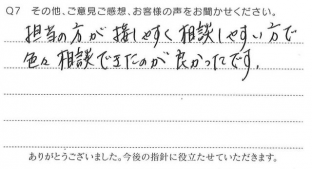 Q7 その他、ご意見ご感想、お客様の声をお聞かせください。
担当の方が接しやすく相談しやすい方で
色々相談できたのが良かったです。
ありがとうございました。今後の指針に役立たせていただきます。